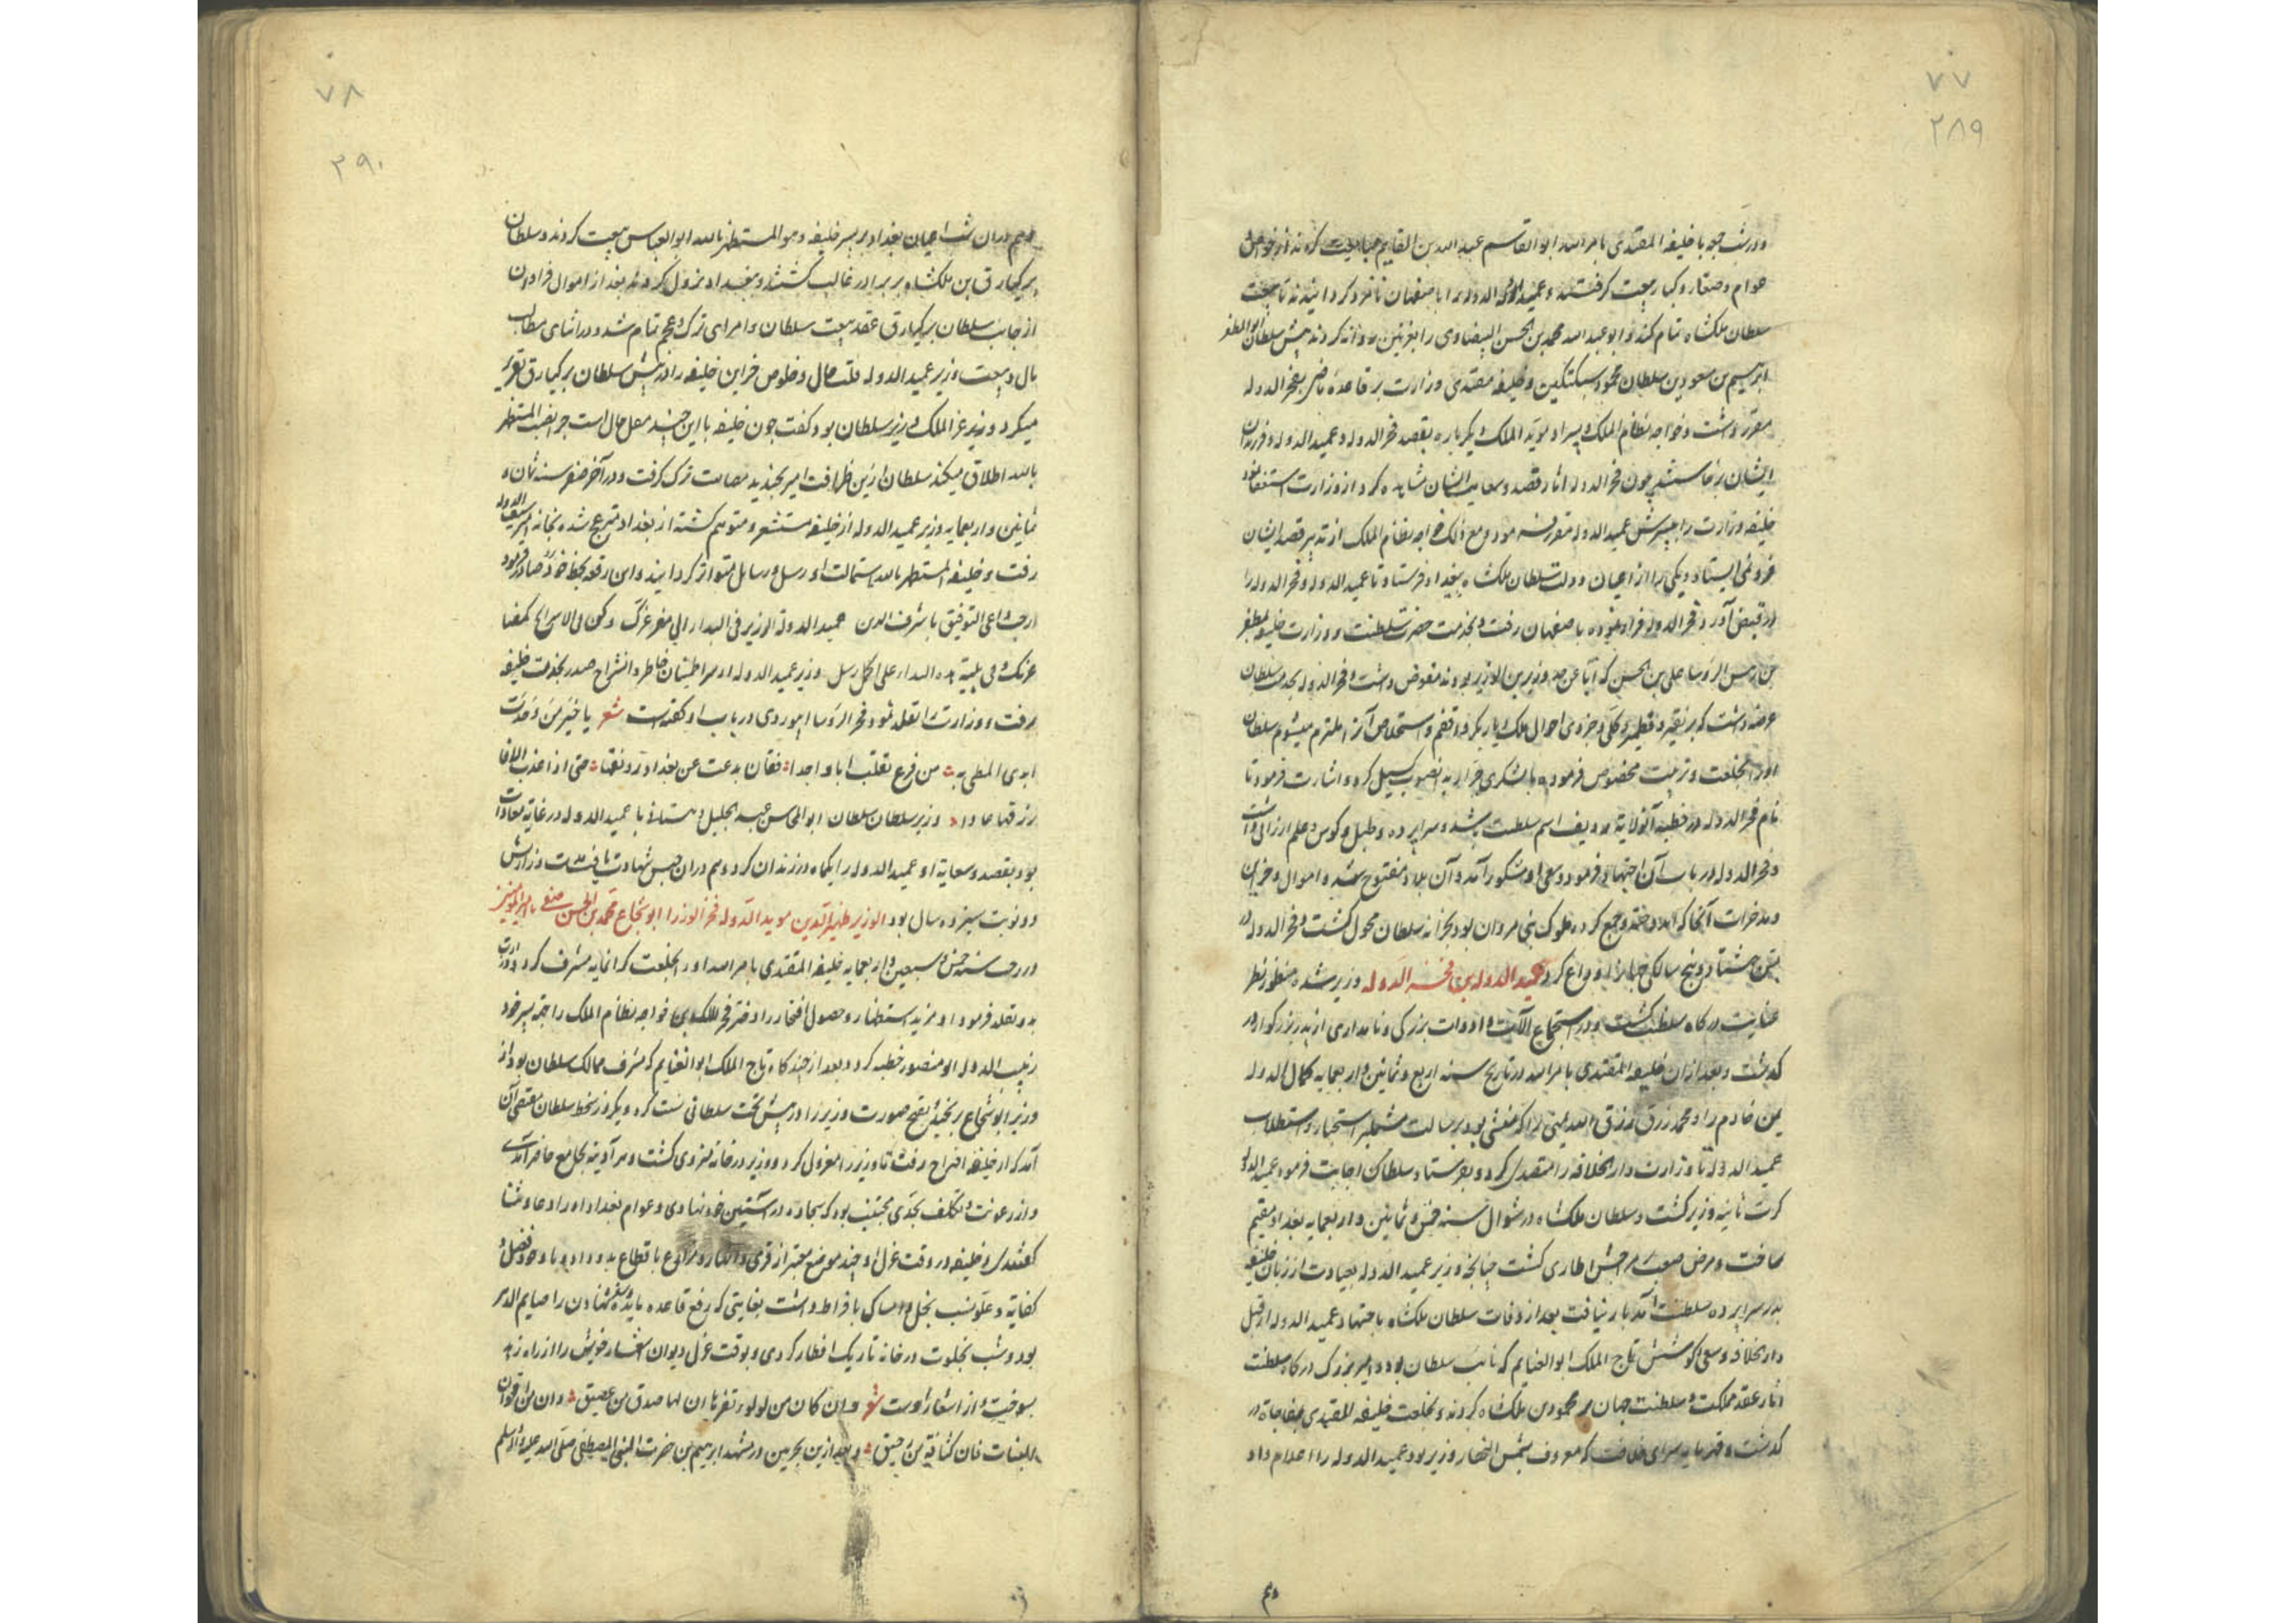 ۷۷
۲۸۹
ودر شب جمعه با خلیفه المقتدی بامرالله ابوالقاسم عبدالله بن القایم مبایعت کردند از خواص
عوام و صغار و کبار بیعت گرفتند و عمید الدوله را باصفهان نامزد کردانیدند تا بیعت
سلطان ملکشاه تمام کند و ابو عبدالله محمد بن الحسن البیضاوی را بغزنین روانه کردند پیش سلطان ابوالمظفر
ابرهیم بن مسعود بن سلطان محمود سبکتکین و خلیفه مقتدی وزارت بر قاعده ماضی بفخر الدوله
مقرر داشت و خواجه نظام الملک و پسر او موید الملک دیگر باره بقصد فخر الدوله و عمید الدوله و فرزندان
ایشان برخاستند چون فخر الدوله اثار قصد و سعایت ایشان مشاهده کرد از وزارت استعفا نمود
خلیفه وزارت را بپسرش عمید الدوله مقرر فرمود و مع ذلک خواجه نظام الملک از تدبیر قصد ایشان
فرو نمی ایستاد و یکی را از اعیان دولت سلطان ملکشاه ببغداد فرستاد تا عمید الدوله و فخر الدوله را
در قبض آورد فخر الدوله فرار نموده باصفهان رفت و بخدمت حضرت سلطنت و وزارت خلیفه بمظفر
بن رئیس الروسا علی بن الحسن که آبا عن جد وزیر بن الوزیر بودند مفوض داشت و فخر الدوله بخدمت سلطان
عرضه داشت که بر نقیر و قطمیر و کلی و جزوی احوال ملک دیار بکر واقفم و استخلاص آنرا ملتزم میشوم سلطان
اورا بخلعت و تربیت مخصوص فرموده با لشکری جرار بدانصوب کسیل کرد و اشارت فرمود تا
نام فخر الدوله در خطبه آنولایة ردیف اسم سلطنت باشد و سراپرده و طبل و کوس و علم ارزانی داشت
و فخر الدوله در باب آن اجتهاد فرمود و سعی او مشکور آمد و آن بلاد مفتوح شد و اموال و خزاین
و مدخرات آنجا که اندوخته و جمع کرده ملوک بنی مروان بود بخزانه سلطان محمول کشت و فخر الدوله در
سن هشتاد و پنج سالکی جهانرا وداع کرد عمید الدوله بن فخر الدوله وزیر شده منظور نظر
عنایت درکاه سلطنت کشت و در استجماع الآت و ادوات بزرکی و نامداری از پدر بزرکوار در
کذشت و بعد ازان خلیفه المقتدی بامرالله در تاریخ سنه اربع و ثمانین و اربعمایه کمال الدوله
یمن خادم را و محمد رزق رزق الله یمنی را که منشی بود برسالت مشتمل بر استخبار و استطلاب
عمید الدوله تا وزارت دار الخلافه را متصدی کردد بفرستاد سلطان اجابت فرمود عمید الدوله
کرت ثانیه وزیر کشت و سلطان ملکشاه در شوال سنه خمس و ثمانین و اربعمایه بغداد مقیم
ساخت و مرض صعب بر جثش طاری کشت چنانچه وزیر عمید الدوله بعیادت از زبان خلیفه
بدر سراپرده سلطنت آمد بار نیافت بعد از وفات سلطان ملکشاه باجتهاد عمید الدوله از قبل
دار الخلافه و سعی و کوشش تاج الملک ابو الغنایم که نائب سلطان بود و امیر بزرک درکاه سلطنت
انار عقد مملکت و سلطنت جهان بر محمود بن ملکشاه کردند و بخلعت خلیفه المقتدی بمفاجاة در
کذشت و قهرمانه سرای خلافت که معروف بشمس النهار وزیر بود عمید الدوله را اعلام داد
وهم
۷۸
۲۹۰
وهم دران شب اعیان بغداد بر پسر خلیفه وهو المستظهر بالله ابو العباس بیعت کردند و سلطان
برکیارق بن ملکشاه بر برادر غالب کشت و ببغداد نزول کردند بعد از اموال فراوان
از جانب سلطان برکیارق عقد بیعت سلطان و امرای ترک و عجم تمام شد و در اثنای مطالب
مال و بیعت وزیر عمید الدوله قلت مال و خلوص خزاین خلیفه را در پیش سلطان برکیارق تقریر
میکرد وزیر عز الملک وزیر سلطان بود کفت چون خلیفه با این حسد مقل حال است چرا لقب المستظهر
بالله اطلاق میکند سلطان ازین ظرافت امیر بخندید مصاحت ترک کرفت و در آخر صفر سنه ثمان و
ثمانین و اربعمایه وزیر عمید الدوله از خلیفه مستشعر و متوهم کشته از بغداد منزعج شده بخانه امیر سیف الدوله
رفت و خلیفه المستظهر بالله استمالت او رسل و رسایل متواتر کردانید و این رقعه بخط خود صادر فرمود
ارجب داعی التوفیق یا شرف الدین عمید الدولة الوزیر فی البدار الی مقر عزک وکن فی الاسراع کمضا
عزمک فی تلبیة هذه البدار علی اکمل رسل وزیر عمید الدوله از سر اطمینان خاطر و انشراح صدر بخدمت خلیفه
رفت و وزارت را تقلد نمود و فخر الروسا ابیوردی در باب او کفته است شعر یا خیر من وخدت
ایدی المطی به من فرع تغلب ابا و اجدا فغان بدعت عن بغداد رونقها حتی اذا عذب الافا
رزقها عادا وزیر سلطان سلطان ابو المحاسن عبد الجلیل دهستانی با عمید الدوله در غایة معادات
بود بقصد و سعایة او عمید الدوله را یکماه در زندان کرد و هم دران حبس شهادت یافت مدت وزارتش
دو نوبت سیزده سال بود الوزیر ظهیر الدین موید الدوله فخر الوزرا ابو شجاع محمد بن الحسن صفی امیر المومنین
در رجب سنه خمس و سبعین و اربعمایه خلیفه المقتدی بامرالله اورا بخلعت کرانمایه مشرف کرد وزارت
بدو تقلد فرمود او مزید استظهار و حصول افتخار را دختر فخر الملک بن خواجه نظام الملک را جهة پسر خود
ربیب الدوله ابو منصور خطبه کرد و بعد از چند کاه تاج الملک ابو الغنایم که مشرف ممالک سلطان بود از
وزیر ابو شجاع برنجید تقبیح صورت وزیر را در پیش تخت سلطانی شت کرد و یکروز بخط سلطان مقتضی آن
آمد که از خلیفه اقتراح رفت تا وزیر را معزول کرد و وزیر در خانه منزوی کشت و هر آدینه بجامع حاضر آمدی
و از رعونت و تکلف بحدی مجتنب بود که سجاده در آستین خود نهادی و عوام بغداد اورا دعا و ثنا
کفتندی و خلیفه در وقت عزل او چند موضع معتبر از قری و انهار و مزارع باقطاع بدو داد و با وجود فضل و
کفایة و علو نسب بخل و امساک بافراط داشت بغایتی که رفع قاعده مایده و سفره نهادن را صایم الدهر
بود و شب بخلوت در خانه تاریک افطار کردی و بوقت عزل دیوان اشعار خویش را از راه زهد
بسوخت و از اشعار اوست شعر وان کان من لولوء ثغر بان لها صدق من عقیق وان من اقوان
البنات فان کثانة من رحیق و بعد ازین بحرمین در مشهد ابرهیم بن حضرت النبی المصطفی صلی الله علیه و اله و سلم